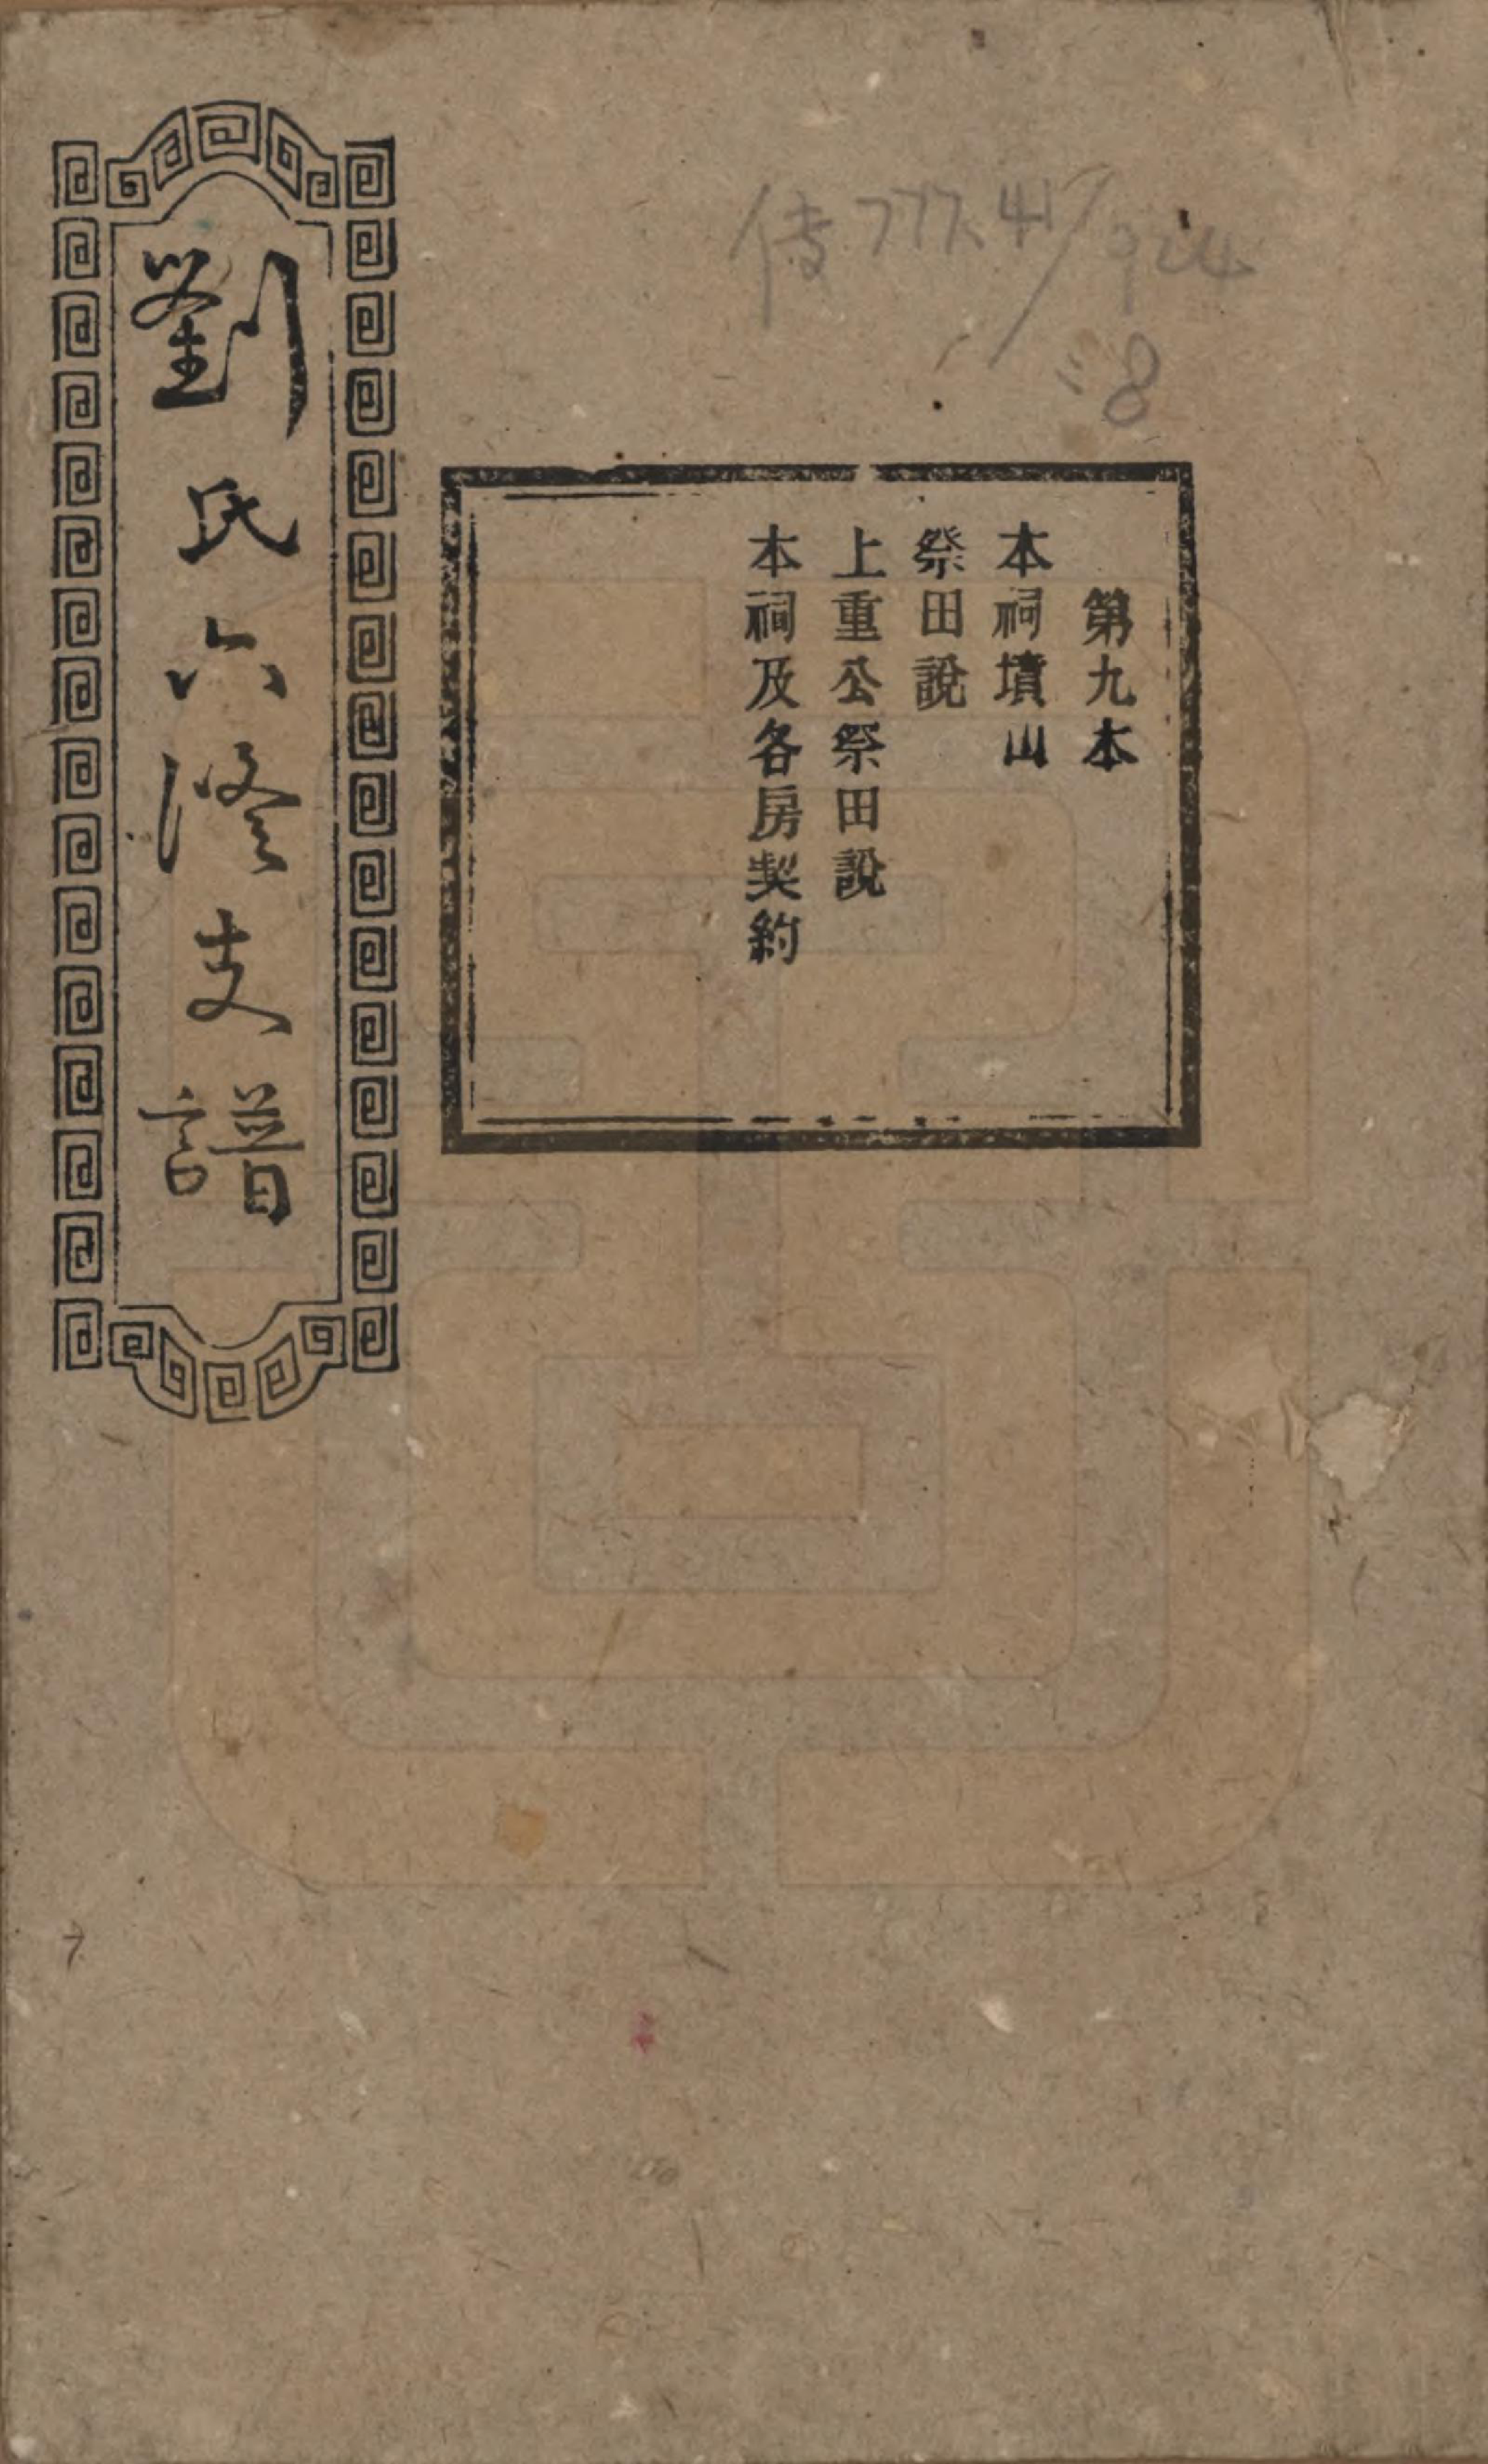 傳777.41/924
:8
第九本
本祠墳山
祭田說
上重公祭田說
本祠及各房契約
劉氏六修支譜
7